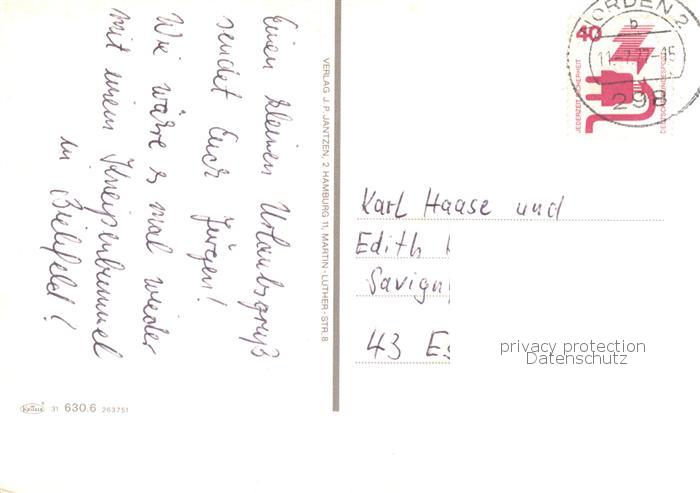 Einen kleinen Urlaubsgruß
sendet Euch Jürgen!
Wie wäre es mal wieder
mit einem Kneipenbummel
in Bielefeld?
VERLAG J. P. JANTZEN, 2 HAMBURG 11, MARTIN-LUTHER-STR. 8
KRÜGER 31 630.6 263751
NORDEN 2
b
298
40
JEDERZEIT SICHERHEIT
DEUTSCHE BUNDESPOST
Karl Haase und
Edith
Savigny
43 Es
privacy protection
Datenschutz